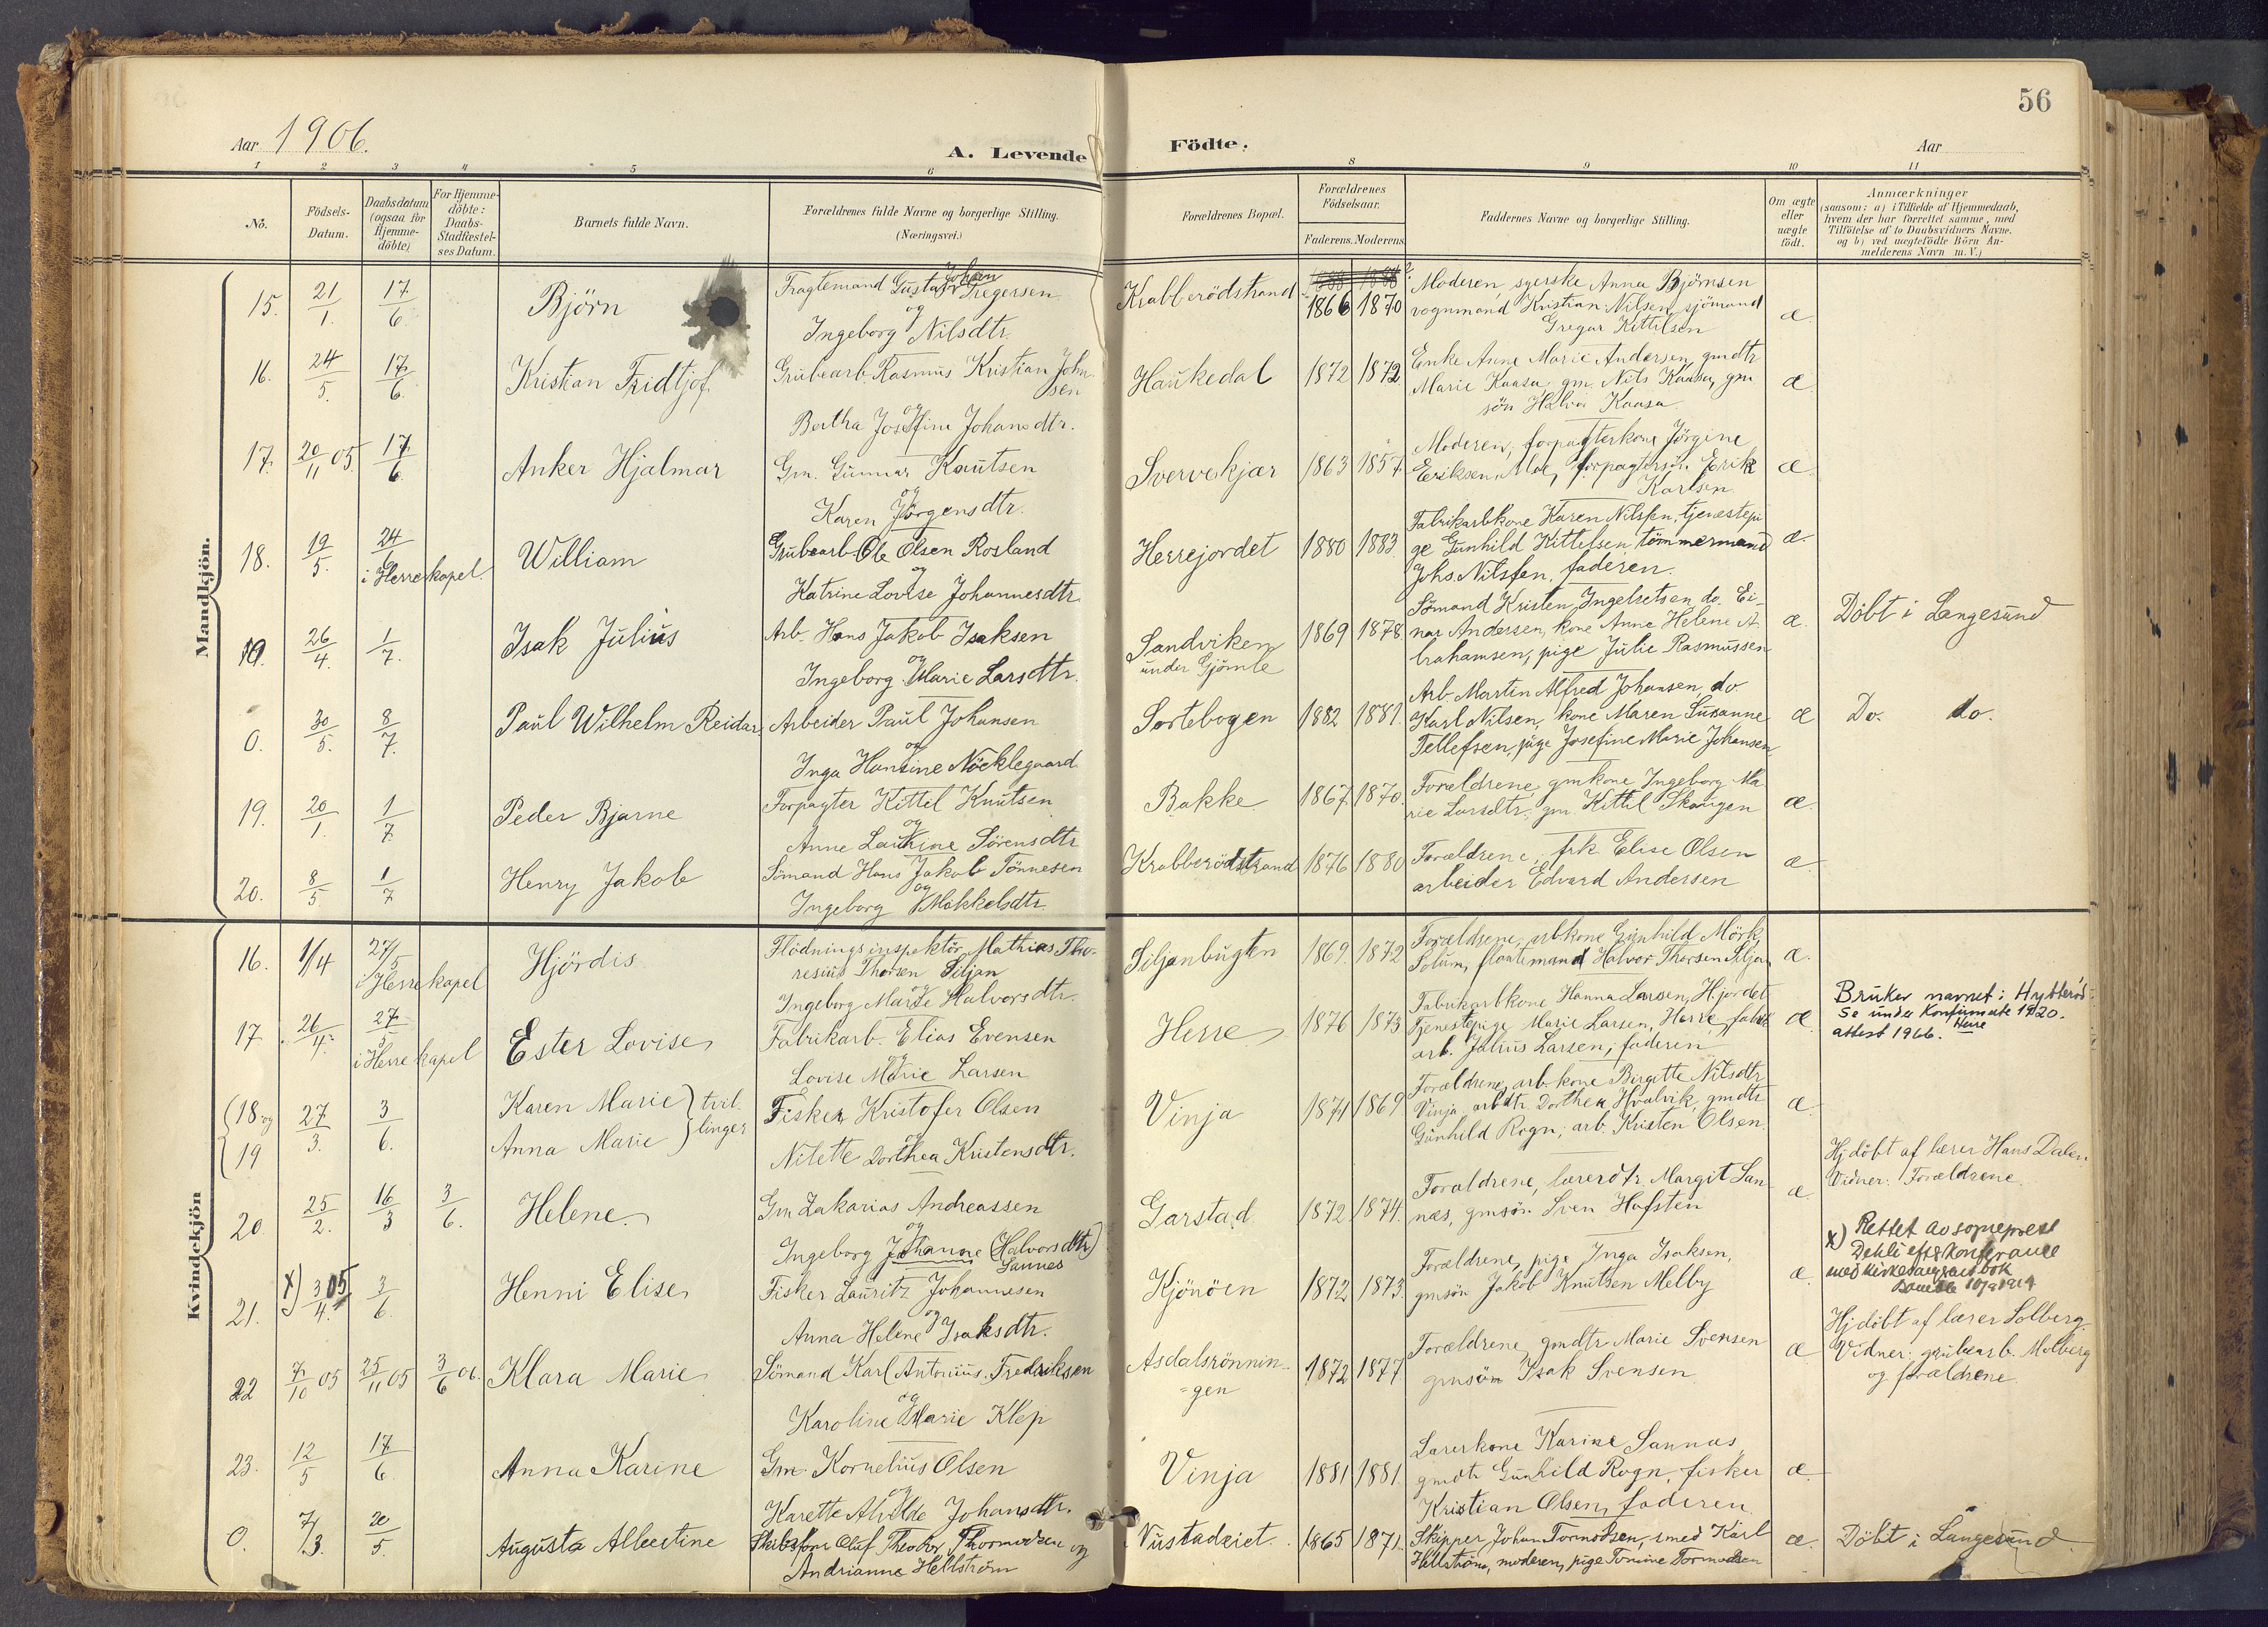 56
Aar 1906.
A. Levende
Födte.
Aar
1 2 3 4 5 6 8 9 10 11
No.
Födsels-
Datum.
Daabsdatum
(ogsaa for
Hjemme-
döbte)
For Hjemme-
döbte:
Daabs-
Stadfæstel-
ses Datum.
Barnets fulde Navn.
Forældrenes fulde Navne og borgerlige Stilling.
(Næringsvei.)
Forældrenes Bopæl.
Forældrenes
Födselsaar.
Faderens. Moderens.
Faddernes Navne og borgerlige Stilling.
Om ægte
eller
uægte
födt.
Anmærkninger
(saasom: a) i Tilfælde af Hjemmedaab,
hvem der har forrettet samme, med
Tilföielse af to Daabsvidners Navne,
og b) ved uægtefödte Börn An-
melderens Navn m. V.)
Mandkjön.
15. 21/1. 17/6. Björn
Fragtemand Gustav Johsen Gregersen
og
Ingeborg Nilsdtr.
Krabberödstrand 1866 1870
Moderen, syerske Anna Björnsen
vognmand Kristian Nilsen, sjömand
Gregar Kittilsen
æ
16. 24/5. 17/6. Kristian Fridtjof
Grubearb. Rasmus Kristian John
sen
og
Bertha Josefine Johansdtr.
Haukedal 1872 1872
Enke Anne Marie Andersen, gmdtr
Marie Kaasa, gm. Nils Kaasa, gm
sön Halvor Kaasa
æ
17. 20/11 05. 17/6 Anker Hjalmar
Gm. Gunnar Knutsen
og
Karen Jörgensdtr.
Svervekjær 1863 1857
Moderen, forpagterkone Jörgine
Eriksen Moe, forpagtersön Erik
Karlsen
æ
18. 19/5. 24/6 i Herre kapel. William
Grubearb. Ole Olsen Rosland
og
Katrine Lovise Johannesdtr.
Herrejordet 1880 1883
Fabrikarbkone Karen Nilsen, tjenestepi
ge Gunhild Kittelsen, tömmermand
Johs. Nilsen, faderen.
æ.
26/4. 1/7. Isak Julius
Arb. Hans Jakob Isaksen
og
Ingeborg Marie Larsdtr.
Sandviken
under Gjömle
1869 1878
Sömand Kristen Ingebretsen, do. Ei-
nar Andersen, kone Anne Helene A
brahamsen, pige Julie Rasmussen
æ. Döbt i Langesund
0. 30/5. 8/7. Paul Wilhelm Reidar
Arbeider Paul Johansen
og
Inga Hansine Nöcklegaard
Sortebogen 1882 1881.
Arb. Martin Alfred Johansen, do.
Karl Nilsen, kone Maren Susanne
Tellefsen, pige Josefine Marie Johansen
æ Do. do.
19. 20/1. 1/7 Peder Bjarne
Forpagter Kittel Knutsen
og
Anne Laurine Sörensdtr
Bakke 1867. 1870.
Forældrene, gmkone Ingeborg Ma
rie Larsdtr. gm Kittil Skougen
æ.
20. 8/5. 1/7 Henry Jakob
Sömand Hans Jakob Tönnesen
og
Ingeborg Mikkelsdtr.
Krabberödstrand 1876 1880
Forældrene, frk. Elise Olsen
arbeider Edvard Andersen
æ
Kvindekjön
16. 1/4 27/5. i Herre kapel Hjördis
Flödningsinspektör Mathias Tho-
resius Thorsen Siljan
og
Ingeborg Marie Halvorsdtr.
Siljanbugten 1869. 1872
Forældrene, arbkone Gunhild Mörk,
Solum, floatemand Halvor Thorsen Siljan
æ.
17. 26/4. 27/5 i Herre kapel Ester Lovise
Fabrikarb. Elias Evensen
og
Lovise Marie Larsen
Herre 1876 1873
Fabrikarbkone Hanna Larsen, Hjordet
Tjenestepige Marie Larsen, Herre, fabrik
arb. Julius Larsen, faderen
æ
Bruker navnet: Hytteröd
Se under Konfirmerte 1920.
attest 1966. Herre
(18 og 27/3. 3/6. Karen Marie } tvil
(19 Anna Marie } linger
Fisker Kristofer Olsen
og
Nilette Dorthea Kristensdtr.
Vinja 1871 1869
Forældrene, arb.kone Birgitte Nilsdtr
Vinja, arbdtr. Dorthea Hvalvik, gmdtr
Gunhild Rogn, arb. Kristen Olsen.
æ
20 25/2. 16/3 3/6. Helene.
Gm Zakarias Andreassen
og
Ingeborg Johanne (Halvorsdtr)
Sannes
Garstad 1872 1874.
Forældrene, lærerdtr. Margit San
næs, gmsön Sven Hafsten
æ
Hj döbt af lærer Hans Dalen
Vidner: Forældrene.
21. x) 3/4. 05 3/6 Henni Elise
Fisker Lauritz Johannesen
og
Anna Helene Isaksdtr.
Kjönöen 1872 1873.
Forældrene, pige Inga Isaksen,
gmsön Jakob Knutsen Melby
æ.
x) Rettet av sogneprest
Dehli efter konferanse
med kirkesangerens bok
22 7/10 05 25/11 05 3/6 06. Klara Marie
Sömand Karl Antonius Fredriksen
og
Karoline Marie Klep
Asdalsrönnin-
=gen
1872 1877
Forældrene, gmdtr Marie Svensen
gmsön Isak Svensen
æ
Hj döbt af lærer Solberg.
Vidner: grubearb. Melberg
og forældrene.
23. 12/5 17/6. Anna Karine
Gm. Kornelius Olsen
og
Karette Alvilde Johansdtr.
Vinja 1881 1881
Lærerkone Karine Sannæs
gmdtr Gunhild Rogn, fisker
Kristian Olsen, faderen
æ
0. 7/3. 20/5. Augusta Albertine
Skibsförer Oluf Theodor Thormodsen og
Andrianne Hellström
Nustadeiet. 1865 1871.
Skipper Johan Tormodsen, smed Karl
Hellström, moderen, pige Tomine Tormodsen
æ. Döbt i Langesund